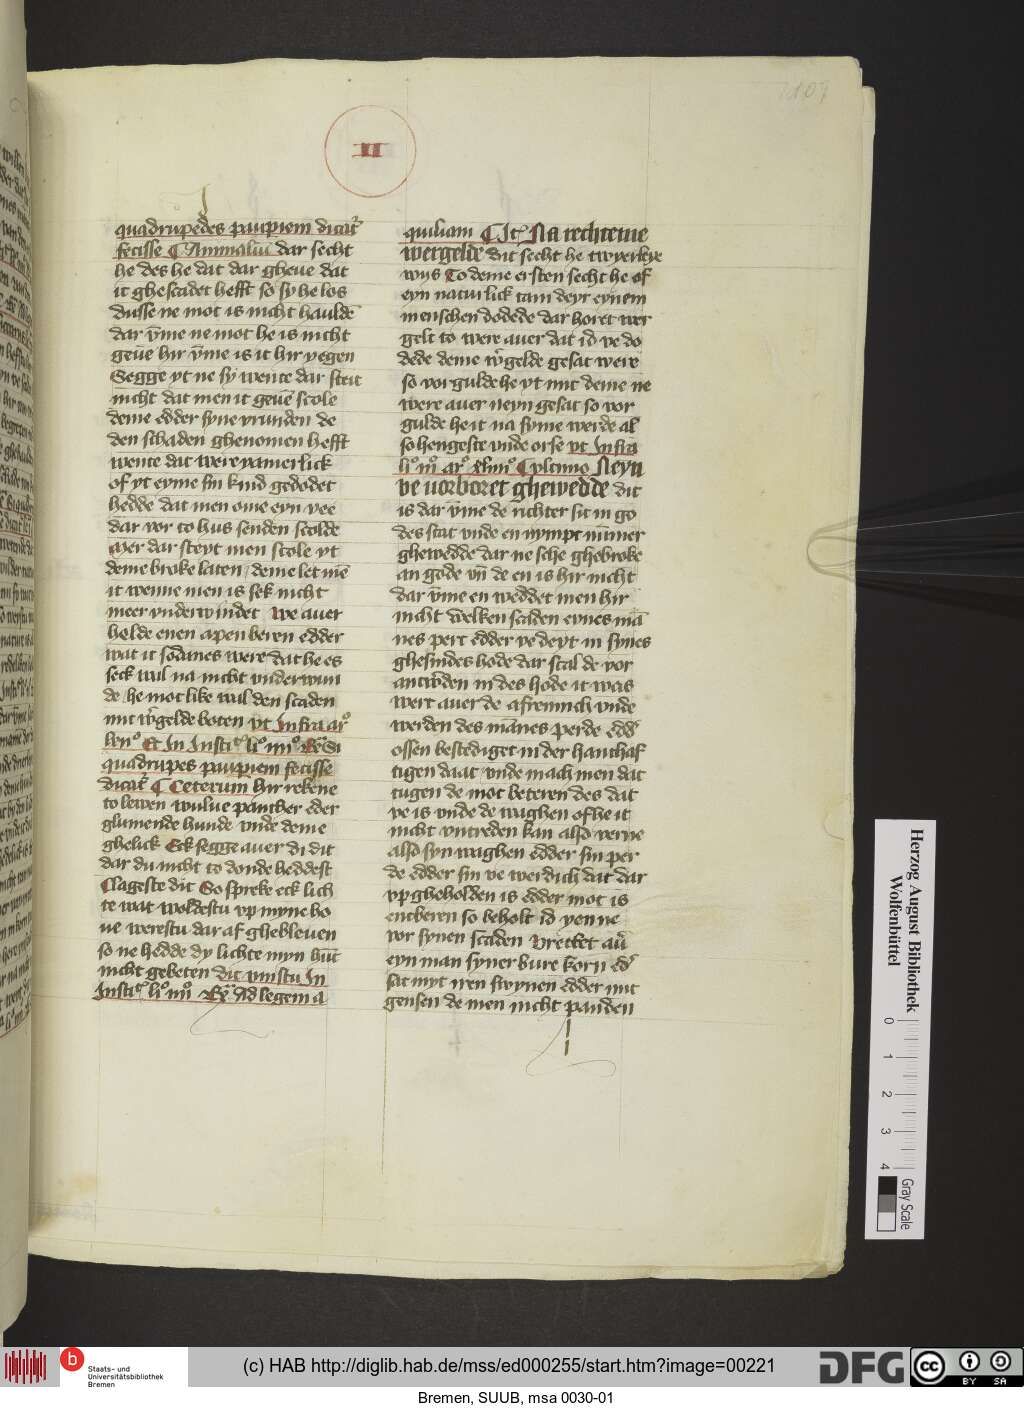 II
quadrupedes paupiem dicat᷑
fecisse ¶ Animaliū dar secht
he des he dat dar gheue dat
it ghescadet hefft so sy he los
dusse ne mot is nicht hauldē
dar v̄me ne mot he is nicht
geūe hir v̄me is it hir yegen
Segge yt ne sy wente dar steit
nicht dat men it geuē scole
deme edder syne vrunden de
den schaden ghenomen hefft
wente dat were
of yt eyme sin kind gedodet
hedde dat men ome eyn vee
dar vor to hus senden scolde
auer dar steyt men scole yt
deme broke laten deme let mē
it wenne men is sek nicht
meer vnderwindet We auer
helde enen apen beren edder
wat it sodanes were dat he es
seck wil na nicht vnderwin
de he mot like wil den scaden
mit w̄gelde boten vt Infra ar°
Et In Insti° li° iiij° Si
quadrupes paupiem fecisse
dicat᷑ ¶ Ceterum hir rekene
to lewen wulue panther eder
glumende hunde vnde deme
ghelick Eck segge auer di dit
dar du nicht to donde heddest
Clageste dit So spreke eck lich
te wat woldestu vp myne bo
ne werestu dar af ghebleuen
so ne hedde dy lichte myn hūt
nicht gebeten dit vinstu In
Insti° li° iiij° Ad legem a
quiliam ¶ It᷑ Na rechteme
wergelde dit secht he twyerleye
wijs To deme ersten secht he of
eyn naturlick tam deyr eynem
menschen dodede dar horet wer
gelt to were auer dat id ve do
dede deme w̄gelde gesat were
so vorgulde he yt mit deme ne
were auer neyn gesat so vor
gulde he it na syme werde al
so hengeste vnde orse vt Infra
li° iij° ar° xlviij° Cpletino Neyn
ve uorboret ghewedde dit
is dar v̄me de richter sit in go
des stat vnde en nympt nūmer
ghewedde dar ne sche ghebroke
an gode vn̄ de en is hir nicht
dar v̄me en weddet men hir
nicht welken scaden eynes mā
nes pert edder ve deyt in synes
ghesindes hode dar scal de vor
antw̄den in des hode it was
wert auer de afremich vnde
werden des mānes perde edd᷑
ossen bestediget in der hanthaf
tigen daat vnde mach men dat
tugen de mot beteren des dat
ve is vnde de waghen of he it
nicht vntreden kan also verne
also syn waghen edder sin per
de edder sin ve werdich dat dar
vp gheholden is edder mot is
entberen so beholt id yenne
vor synen scaden Vrecket au᷑
eyn man syner bure korn ed᷑
sat myt nen swynen edder mit
gensen de men nicht panden
Herzog August Bibliothek
Wolfenbüttel
0 1 2 3 4
Gray Scale
b
Staats- und
Universitätsbibliothek
Bremen
(c) HAB http://diglib.hab.de/mss/ed000255/start.htm?image=00221
DFG
cc BY SA
Bremen, SUUB, msa 0030-01